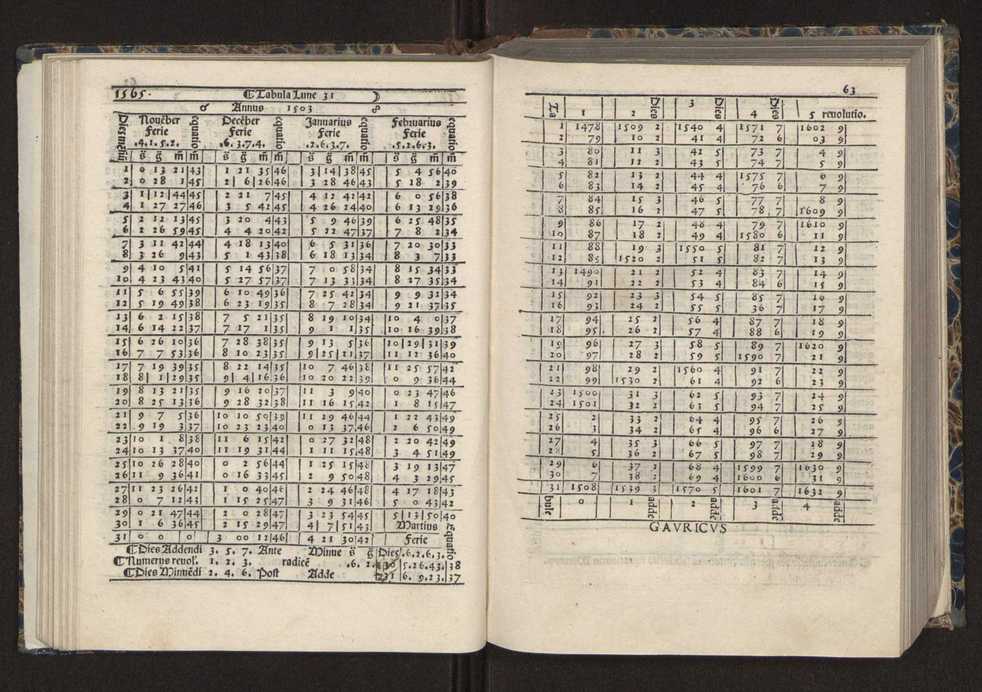 1565. ☾ Tabula Lune 31
♂ Annus 1503 ☍
Dies mēsiū Nouēber equatio Decēber equatio Januarius equatio Februarius equatio
Ferie Ferie Ferie Ferie
.4.1.5.2. .6.3.7.4. .2.6.3.7. .5.2.6.3.
s̄ ḡ m̄ m̄ s̄ ḡ m̄ m̄ s̄ ḡ m̄ m̄ s̄ ḡ m̄ m̄
1 0 13 21 43 1 21 35 46 3 14 38 45 5 4 56 40
2 0 28 1 45 2 6 26 46 3 28 46 43 5 18 2 39
3 1 12 44 45 2 21 7 45 4 12 42 42 6 0 56 38
4 1 27 27 46 3 5 42 45 4 26 24 40 6 13 29 36
5 2 12 13 45 3 20 4 43 5 9 46 39 6 25 48 35
6 2 26 59 45 4 4 20 42 5 22 47 37 7 8 2 34
7 3 11 42 44 4 18 13 40 6 5 31 36 7 20 30 33
8 3 26 9 43 5 1 43 38 6 18 13 34 8 3 7 33
9 4 10 5 41 5 14 56 37 7 0 58 34 8 15 34 33
10 4 23 43 40 5 27 57 37 7 13 33 34 8 27 35 34
11 5 6 55 39 6 10 49 36 7 25 42 34 9 9 32 34
12 5 19 49 38 6 23 19 35 8 7 28 34 9 21 37 35
13 6 2 15 38 7 5 21 35 8 19 10 34 10 4 0 37
14 6 14 22 37 7 17 1 35 9 1 1 35 10 16 39 38
15 6 26 10 36 7 28 38 35 9 13 5 36 10 29 31 39
16 7 7 53 36 8 10 23 35 9 25 21 37 11 12 36 40
17 7 19 39 35 8 22 14 35 10 7 46 38 11 25 57 42
18 8 1 29 35 9 4 16 36 10 20 22 39 0 9 36 44
19 8 13 21 35 9 16 20 37 11 3 9 40 0 23 47 46
20 8 25 13 36 9 28 32 38 11 16 15 42 1 8 15 47
21 9 7 5 36 10 10 50 39 11 29 46 44 1 22 43 49
22 9 19 3 37 10 23 23 40 0 13 37 46 2 6 50 49
23 10 1 8 38 11 6 15 42 0 27 32 48 2 20 42 49
24 10 13 37 40 11 19 31 44 1 11 15 48 3 4 51 49
25 10 26 28 40 0 2 56 44 1 25 15 48 3 19 13 47
26 11 9 36 41 0 16 33 45 2 9 50 48 4 3 29 45
27 11 23 26 42 1 0 40 46 2 24 46 48 4 17 18 43
28 0 7 12 43 1 15 25 47 3 9 31 46 5 0 43 42
29 0 21 47 44 2 0 28 47 3 23 54 45 5 13 50 40
30 1 6 36 45 2 15 29 47 4 7 51 43 Martius
31 0 0 0 3 00 12 46 4 21 30 42 Ferie equatio
☾ Dies Addendi 3. 5. 7. Ante Minue s̄ ḡ Dies .6.2.6.3.
☾ Numerus reuol. 1. 2. 3. radicē .6. 2. 30 5.26.43. 38
☾ Dies Minuēdi 2. 4. 6. Post Adde 31 6. 9.23. 37
63
Ta 1 2 Dies 3 Dies 4 Dies 5 reuolutio.
1 1478 1509 2 1540 4 1571 7 1602 9
2 79 10 2 41 4 72 6 03 9
3 80 11 3 42 5 73 7 4 9
4 81 12 2 43 5 74 7 5 9
5 82 13 2 44 4 1575 7 6 9
6 83 14 2 45 4 76 6 7 9
7 84 15 3 46 5 77 7 8 9
8 85 16 2 47 5 78 7 1609 9
9 86 17 2 48 4 79 7 1610 9
10 87 18 2 49 4 1580 6 11 9
11 88 19 3 1550 5 81 7 12 9
12 85 1520 2 51 5 82 7 13 9
13 1490 21 2 52 4 83 7 14 9
14 91 22 2 53 4 84 6 15 9
15 92 23 3 54 5 85 7 16 9
16 93 24 2 55 5 36 7 17 9
17 94 25 2 56 4 87 7 18 9
18 95 26 2 57 4 88 6 19 9
19 96 27 3 58 5 89 7 1620 9
20 97 28 2 59 5 1590 7 21 9
21 98 29 2 1560 4 91 7 22 9
22 99 1530 2 61 4 92 6 23 9
23 1500 31 3 62 5 93 7 24 9
24 1501 32 2 63 5 94 7 25 9
25 2 33 2 64 4 95 7 26 9
26 3 34 2 65 4 96 6 27 9
27 4 35 3 66 5 97 7 28 9
28 5 36 2 67 5 98 7 29 9
29 6 37 2 68 4 1599 7 1630 9
30 7 38 2 69 4 1600 6 31 9
31 1508 1539 3 1570 5 1601 7 1632 9
bule 0 1 adde 2 adde 3 adde 4 adde
GAVRICVS